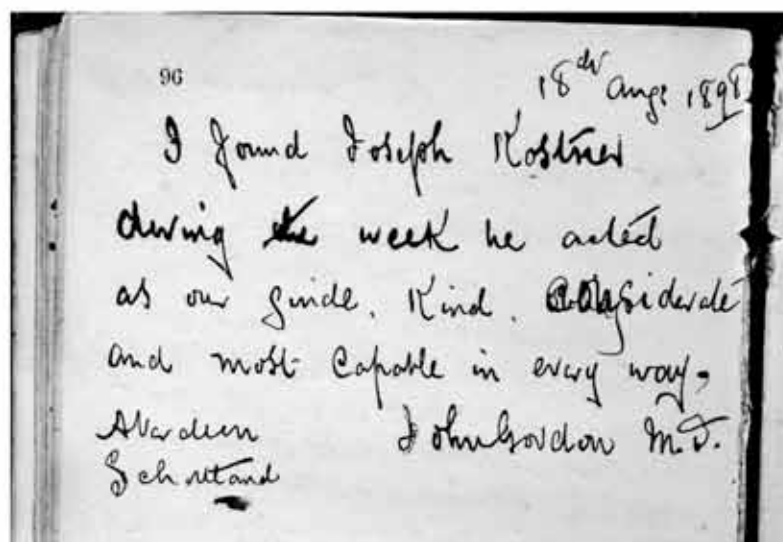 96
18th Augt 1898
I found Joseph Kostner
during the week he acted
as our guide, Kind, considerate
and most capable in every way.
Aberdeen John Gordon M.D.
Schottland